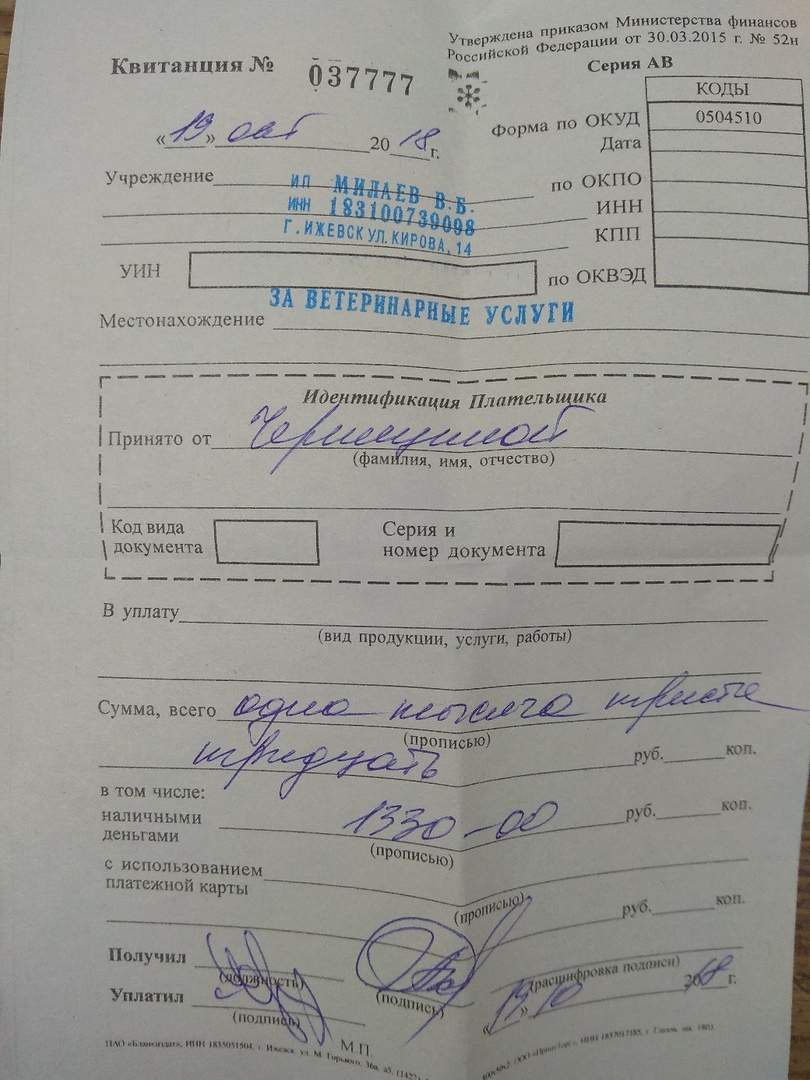 Утверждена приказом Министерства финансов
Российской Федерации от 30.03.2015 г. № 52н
Квитанция № 037777
Серия АВ
КОДЫ
Форма по ОКУД 0504510
« 19 » окт 2018 г.
Дата
Учреждение ИП МИЛАЕВ В.Б. по ОКПО
ИНН 183100739098 ИНН
Г. ИЖЕВСК УЛ. КИРОВА, 14 КПП
УИН по ОКВЭД
ЗА ВЕТЕРИНАРНЫЕ УСЛУГИ
Местонахождение
Идентификация Плательщика
Принято от
(фамилия, имя, отчество)
Код вида документа
Серия и номер документа
В уплату
(вид продукции, услуги, работы)
Сумма, всего одна тысяча триста
(прописью)
тридцать руб. коп.
в том числе:
наличными деньгами 1330-00 руб. коп.
(прописью)
с использованием
платежной карты
(прописью) руб. коп.
Получил
(должность) (подпись) (расшифровка подписи)
Уплатил « 19 » 10 2018 г.
(подпись)
М.П.